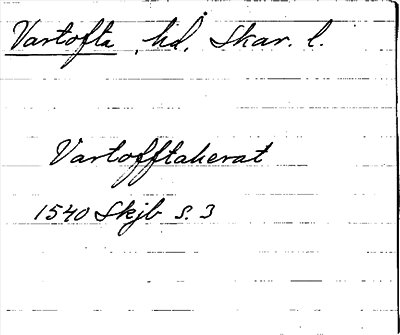 Vartofta hd, Skar. l.
Vartofftaherat
1540 Skjb s. 3